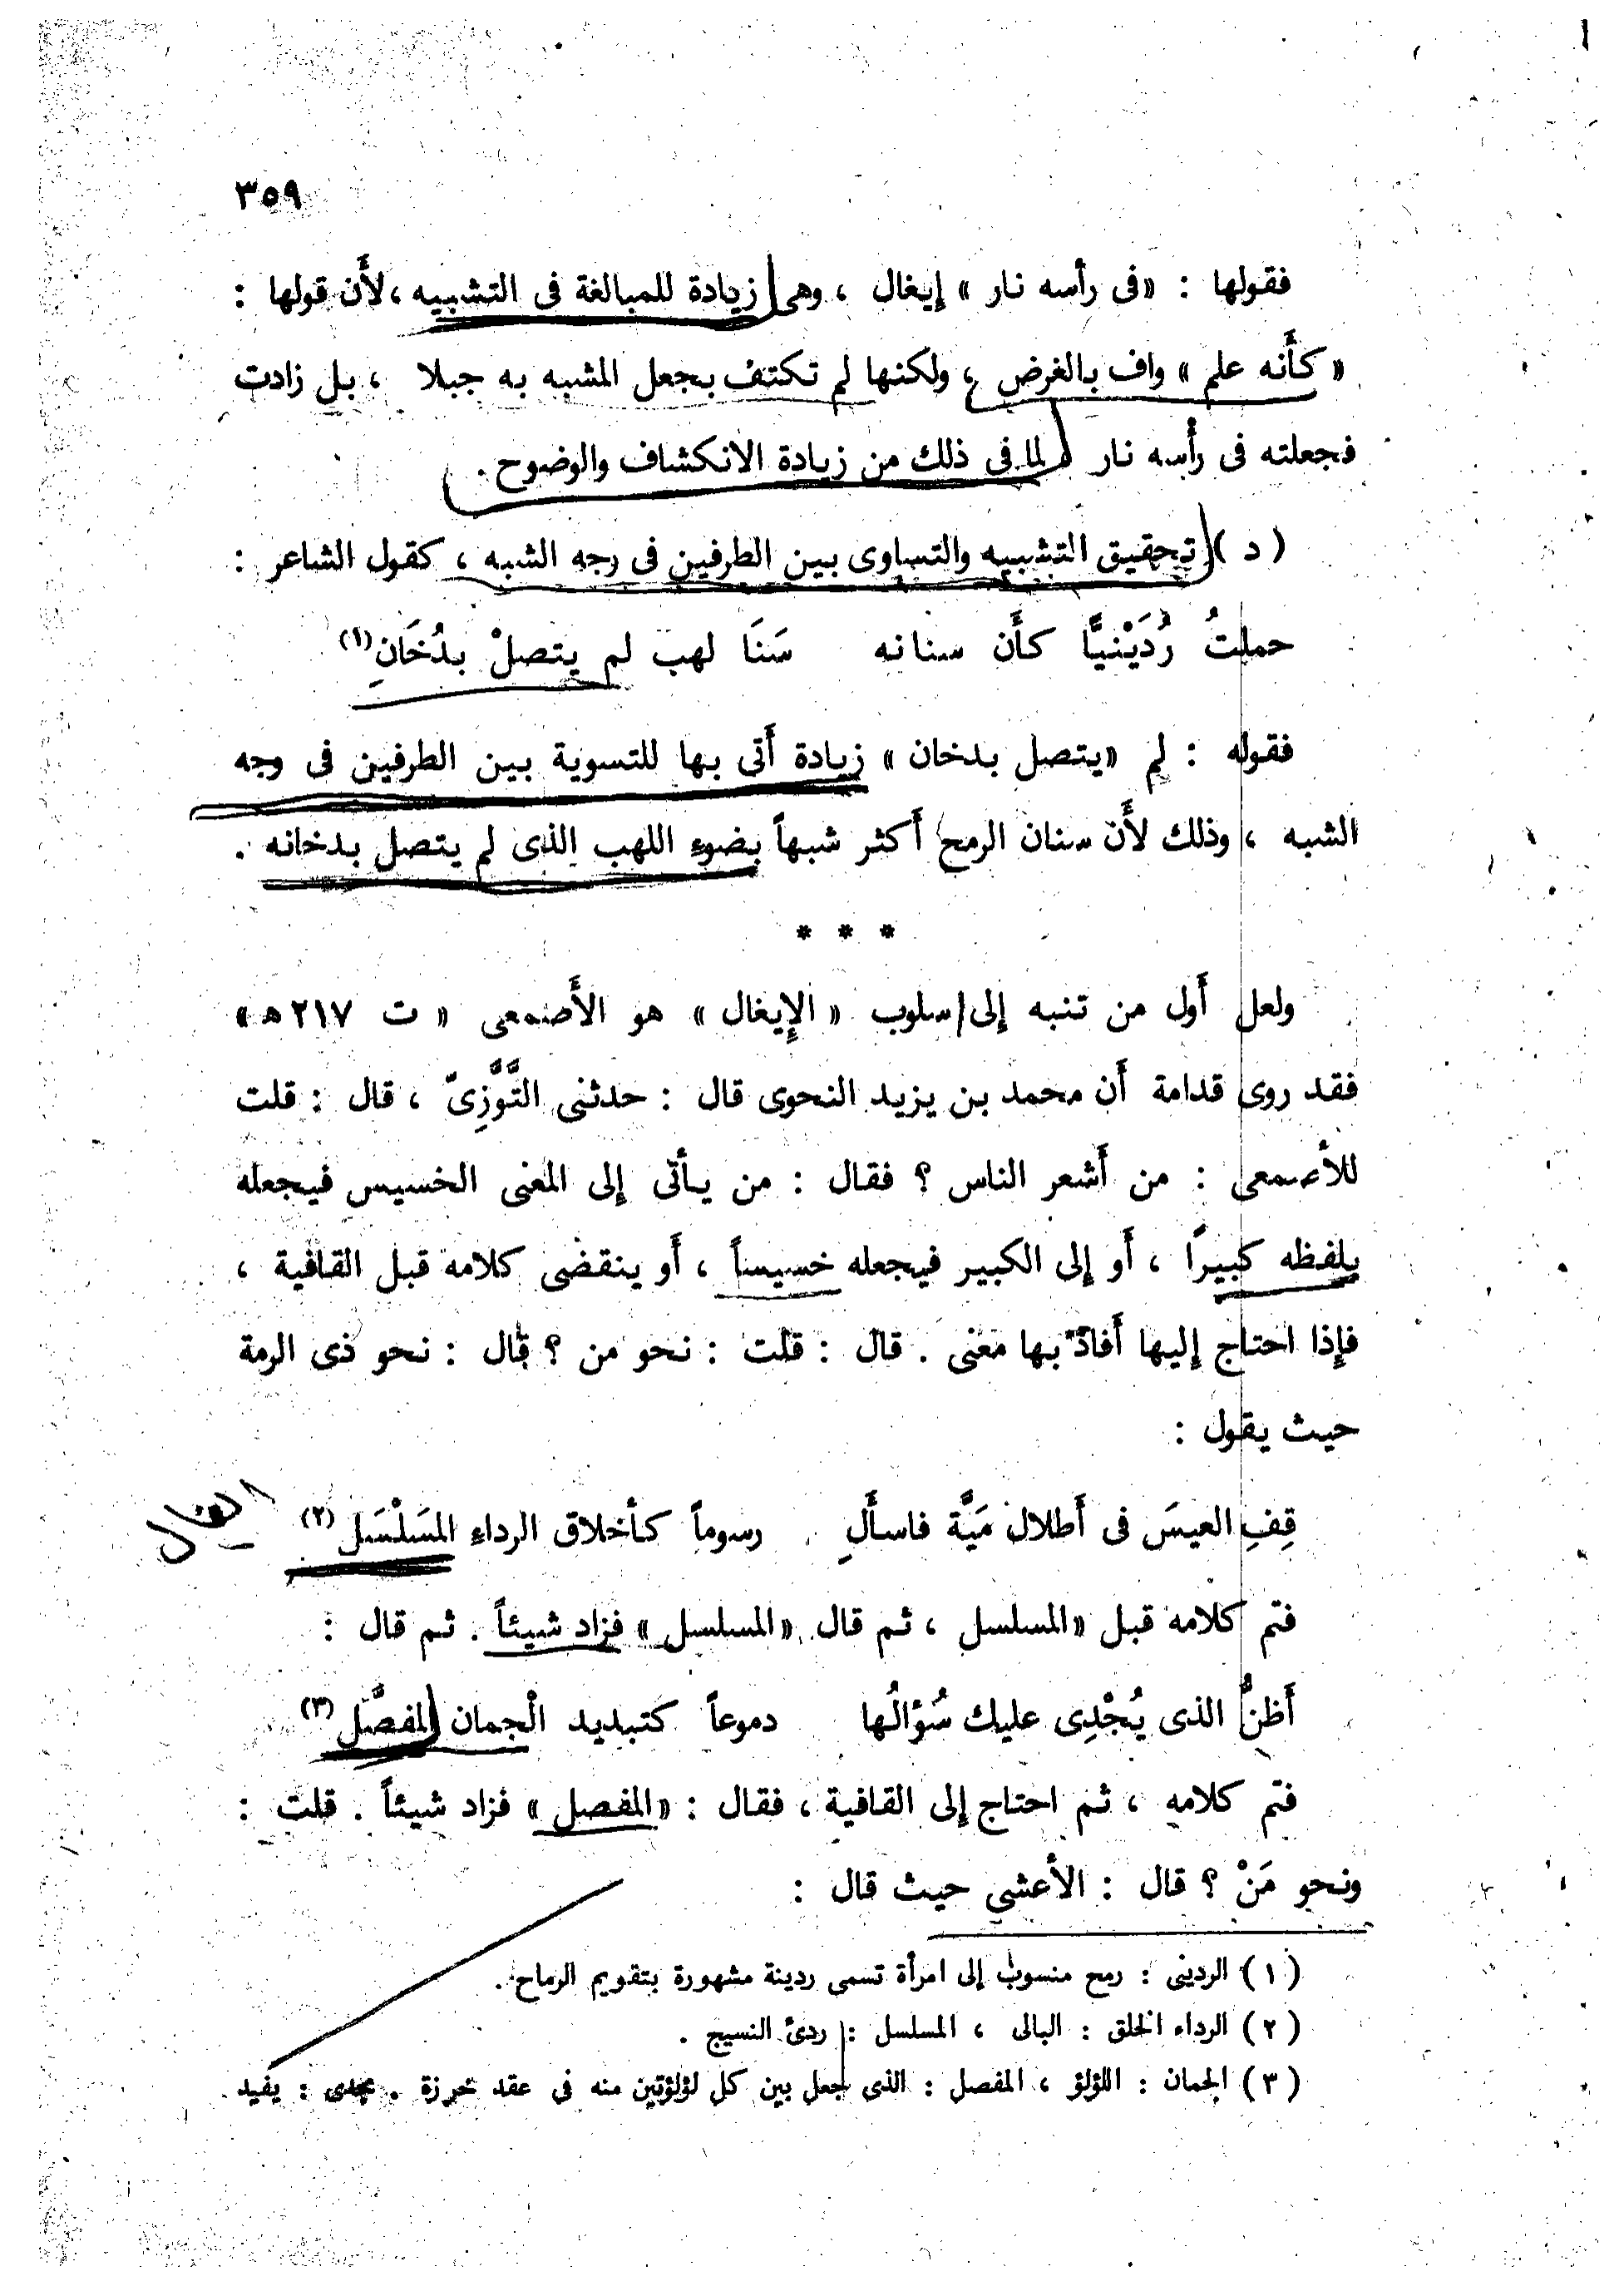 ٣٥٩
فقولها : «فى رأسه نار» إيغال ، وهى زيادة للمبالغة فى التشبيه ، لأَن قولها :
«كأَنه علم» واف بالغرض ، ولكنها لم تكتف بجعل المشبه به جبلا ، بل زادت
فجعلته فى رأْسه نار لما فى ذلك من زيادة الانكشاف والوضوح .
( د ) تحقيق التشبيه والتساوى بين الطرفين فى وجه الشبه ، كقول الشاعر :
حملتُ رُدَيْنيًّا كأَن سنانه سَنَا لهب لم يتصلْ بدُخَانِ (١)
فقوله : لم «يتصل بدخان» زيادة أَتى بها للتسوية بين الطرفين فى وجه
الشبه ، وذلك لأَن سنان الرمح أَكثر شبهاً بضوء اللهب الذى لم يتصل بدخانه .
* * *
ولعل أَول من تنبه إلى اسلوب « الإِيغال » هو الأَصمعى « ت ٢١٧ ه »
فقد روى قدامة أَن محمد بن يزيد النحوى قال : حدثنى التَّوَّزِىّ ، قال : قلت
للأَصمعى : من أَشعر الناس ؟ فقال : من يأتى إلى المعنى الخسيس فيجعله
بلفظه كبيرًا ، أَو إلى الكبير فيجعله خسيساً ، أَو ينقضى كلامه قبل القافية ،
فإِذا احتاج إليها أَفاد بها معنى . قال : قلت : نحو من ؟ قال : نحو ذى الرمة
حيث يقول :
قِفِ العيسَ فى أَطلال مَيَّة فاسأَلِ رسوماً كأخلاق الرداءِ المسَلْسَل (٢)
ايغال
فتم كلامه قبل «المسلسل ، ثم قال «المسلسل» فزاد شيئاً . ثم قال :
أَظنُّ الذى يُجْدِى عليك سُؤالُها دموعاً كتبديد الْجمان المفصَّل (٣)
فتم كلامه ، ثم احتاج إلى القافية ، فقال : «المفصل» فزاد شيئاً . قلت :
ونحو مَنْ ؟ قال : الأَعشى حيث قال :
( ١ ) الردينى : رمح منسوب إلى امرأة تسمى ردينة مشهورة بتقويم الرماح .
( ٢ ) الرداء الخلق : البالى ، المسلسل : ردئ النسيج .
( ٣ ) الجمان : اللؤلؤ ، المفصل : الذى جعل بين كل لؤلؤتين منه فى عقد خرزة . يجدى : يفيد .